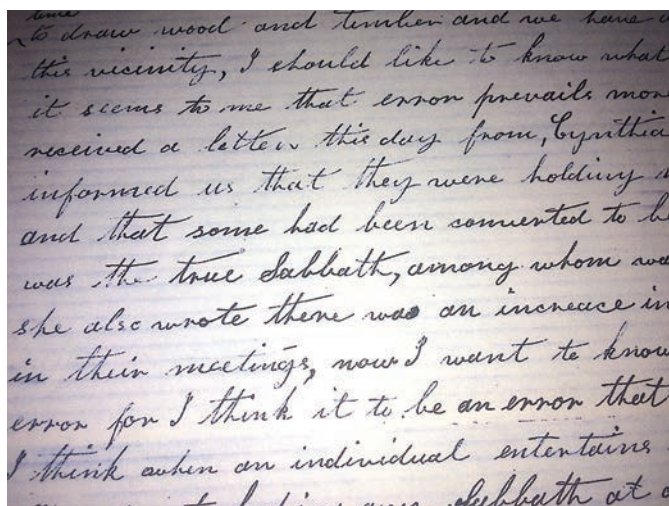 time
to draw wood and timber and we have
this vicinity, I should like to know what
it seems to me that error prevails more
received a letter this day from, Cynthia
informed us that they were holding
and that some had been converted to be
was the true Sabbath, among whom wa
she also wrote there was an increace in
in their meetings, now I want to know
error for I think it to be an error that
I think when an individual entertains
Sabbath at